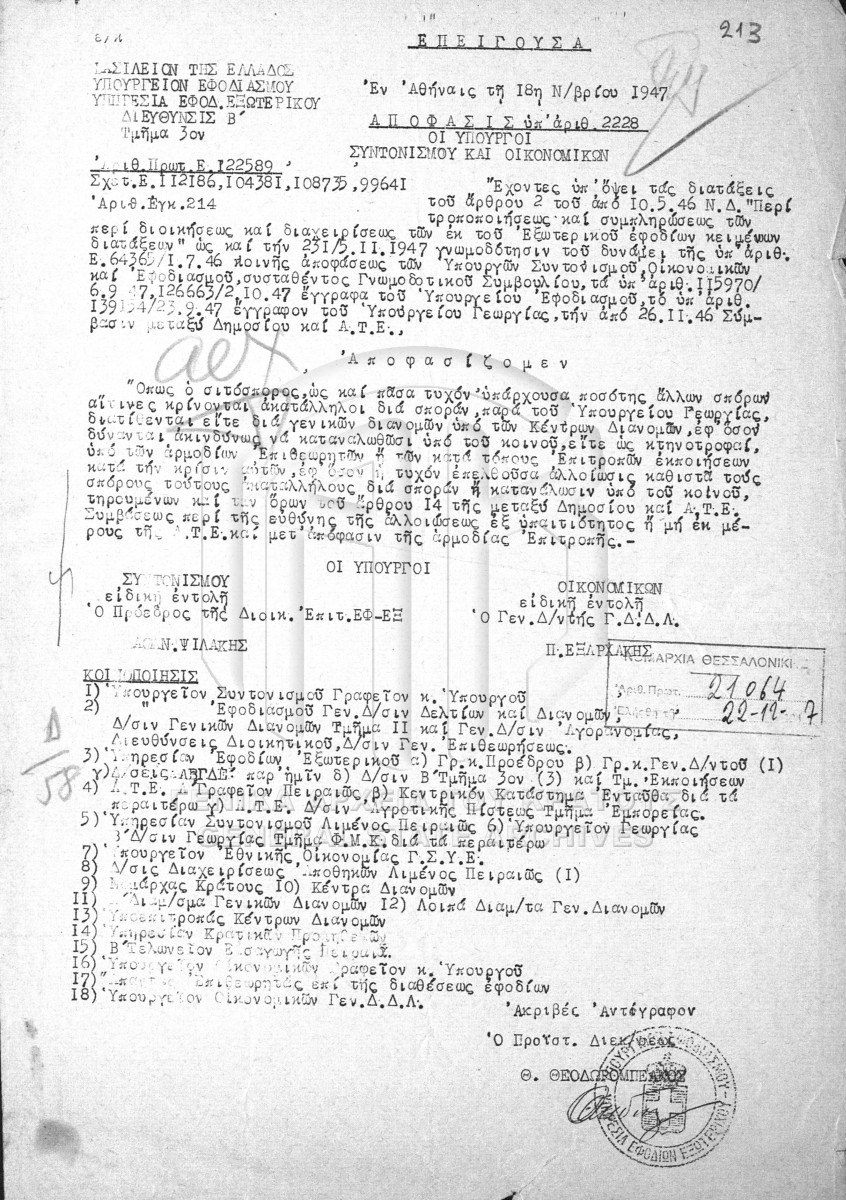 213
ΕΠΕΙΓΟΥΣΑ
ΒΑΣΙΛΕΙΟΝ ΤΗΣ ΕΛΛΑΔΟΣ
ΥΠΟΥΡΓΕΙΟΝ ΕΦΟΔΙΑΣΜΟΥ
ΥΠΗΡΕΣΙΑ ΕΦΟΔ.ΕΞΩΤΕΡΙΚΟΥ
ΔΙΕΥΘΥΝΣΙΣ Β΄
Τμῆμα 3ον
Ἀριθ.Πρωτ.Ε.122589
Σχετ.Ε.112186,104381,108735,99641
Ἀριθ.Ἐγκ.214
Ἐν Ἀθήναις τῇ 18η Ν/βρίου 1947
ΑΠΟΦΑΣΙΣ ὑπ'ἀριθ.2228
ΟΙ ΥΠΟΥΡΓΟΙ
ΣΥΝΤΟΝΙΣΜΟΥ ΚΑΙ ΟΙΚΟΝΟΜΙΚΩΝ
Ἔχοντες ὑπ'ὄψει τάς διατάξεις
τοῦ ἄρθρου 2 τοῦ ἀπό 10.5.46 Ν.Δ."Περί
τροποποιήσεως καί συμπληρώσεως τῶν
περί διοικήσεως καί διαχειρίσεως τῶν ἐκ τοῦ Ἐξωτερικοῦ ἐφοδίων κειμένων
διατάξεων" ὡς καί τήν 231/5.11.1947 γνωμοδότησιν τοῦ δυνάμει τῆς ὑπ'ἀριθ.
Ε.64365/1.7.46 κοινῆς ἀποφάσεως τῶν Ὑπουργῶν Συντονισμοῦ,Οἰκονομικῶν
καί Ἐφοδιασμοῦ,συσταθέντος Γνωμοδοτικοῦ Συμβουλίου,τά ὑπ'ἀριθ.115970/
6.9.47,126663/2.10.47 ἔγγραφα τοῦ Ὑπουργείου Ἐφοδιασμοῦ,τό ὑπ'ἀριθ.
139134/23.9.47 ἔγγραφον τοῦ Ὑπουργείου Γεωργίας,τήν ἀπό 26.11.46 Σύμ-
βασιν μεταξύ Δημοσίου καί Α.Τ.Ε.,
Ἀποφασίζομεν
Ὅπως ὁ σιτόσπορος,ὡς καί πᾶσα τυχόν ὑπάρχουσα ποσότης ἄλλων σπόρων
αἵτινες κρίνονται ἀκατάλληλοι διά σποράν,παρά τοῦ Ὑπουργείου Γεωργίας,
διατίθενται εἴτε διά γενικῶν διανομῶν ὑπό τῶν Κέντρων Διανομῶν,ἐφ'ὅσον
δύνανται ἀκινδύνως νά καταναλωθῶσι ὑπό τοῦ κοινοῦ,εἴτε ὡς κτηνοτροφαί,
ὑπό τῶν ἁρμοδίων Ἐπιθεωρητῶν ἤ τῶν κατά τόπους Ἐπιτροπῶν ἐκποιήσεων
κατά τήν κρίσιν αὐτῶν,ἐφ'ὅσον ἡ τυχόν ἐπελθοῦσα ἀλλοίωσις καθιστᾶ τούς
σπόρους τούτους ἀκαταλλήλους διά σποράν ἤ κατανάλωσιν ὑπό τοῦ κοινοῦ,
τηρουμένων καί τῶν ὅρων τοῦ ἄρθρου 14 τῆς μεταξύ Δημοσίου καί Α.Τ.Ε.
Συμβάσεως περί τῆς εὐθύνης τῆς ἀλλοιώσεως ἐξ ὑπαιτιότητος ἤ μή ἐκ μέ-
ρους τῆς Α.Τ.Ε.καί μετ'ἀπόφασιν τῆς ἁρμοδίας Ἐπιτροπῆς.-
ΟΙ ΥΠΟΥΡΓΟΙ
ΣΥΝΤΟΝΙΣΜΟΥ
εἰδικῇ ἐντολῇ
Ὁ Πρόεδρος τῆς Διοικ.Ἐπιτ.ΕΦ-ΕΞ
ΑΘΑΝ.ΨΙΛΑΚΗΣ
ΟΙΚΟΝΟΜΙΚΩΝ
εἰδικῇ ἐντολῇ
Ὁ Γεν.Δ/ντής Γ.Δ.Δ.Λ.
Π.ΕΞΑΡΧΑΚΗΣ
ΝΟΜΑΡΧΙΑ ΘΕΣΣΑΛΟΝΙΚΗΣ
Ἀριθ.Πρωτ. 21064
Ἐλήφθη τῇ 22-12-7
ΚΟΙΝΟΠΟΙΗΣΙΣ
1) Ὑπουργεῖον Συντονισμοῦ Γραφεῖον κ.Ὑπουργοῦ
2) " Ἐφοδιασμοῦ Γεν.Δ/σιν Δελτίων καί Διανομῶν,
Δ/σιν Γενικῶν Διανομῶν Τμῆμα ΙΙ καί Γεν.Δ/σιν Ἀγορανομίας,
Διευθύνσεις Διοικητικοῦ,Δ/σιν Γεν.Ἐπιθεωρήσεως.
3) Ὑπηρεσίαν Ἐφοδίων Ἐξωτερικοῦ α) Γρ.κ.Προέδρου β) Γρ.κ.Γεν.Δ/ντοῦ (1)
γ) Δ/σεις ΑΒΓΔΕ παρ'ἡμῖν δ) Δ/σιν Β΄Τμῆμα 3ον (3) καί Τμ.Ἐκποιήσεων
4) Α.Τ.Ε. α)Γραφεῖον Πειραιῶς,β) Κεντρικόν Κατάστημα Ἐνταῦθα διά τά
περαιτέρω γ) Α.Τ.Ε. Δ/σιν Ἀγροτικῆς Πίστεως Τμῆμα Ἐμπορείας.
5) Ὑπηρεσίαν Συντονισμοῦ Λιμένος Πειραιῶς 6) Ὑπουργεῖον Γεωργίας
Β΄Δ/σιν Γεωργίας Τμῆμα Φ.Μ.Κ.διά τά περαιτέρω
7) Ὑπουργεῖον Ἐθνικῆς Οἰκονομίας Γ.Σ.Υ.Ε.
8) Δ/σις Διαχειρίσεως Ἀποθηκῶν Λιμένος Πειραιῶς (1)
9) Νομάρχας Κράτους 10) Κέντρα Διανομῶν
11) Διαμ/σμα Γενικῶν Διανομῶν 12) Λοιπά Διαμ/τα Γεν.Διανομῶν
13) Ὑποεπιτροπάς Κέντρων Διανομῶν
14) Ὑπηρεσίαν Κρατικῶν Προμηθειῶν
15) Β΄Τελωνεῖον Εἰσαγωγῆς Πειραιᾶ.
16) Ὑπουργεῖον Οἰκονομικῶν Γραφεῖον κ.Ὑπουργοῦ
17) Ἅπαντας Ἐπιθεωρητάς ἐπί τῆς διαθέσεως ἐφοδίων
18) Ὑπουργεῖον Οἰκονομικῶν Γεν.Δ.Δ.Λ.
Ἀκριβές Ἀντίγραφον
Ὁ Προϊστ. Διεκ/σεως
Θ. ΘΕΟΔΩΡΟΜΠΕΑΚΟΣ
ΥΠΟΥΡΓΕΙΟΝ ΕΦΟΔΙΑΣΜΟΥ - ΥΠΗΡΕΣΙΑ ΕΦΟΔΙΩΝ ΕΞΩΤΕΡΙΚΟΥ
ΓΕΝΙΚΑ ΑΡΧΕΙΑ ΤΟΥ ΚΡΑΤΟΥΣ
GENERAL STATE ARCHIVES